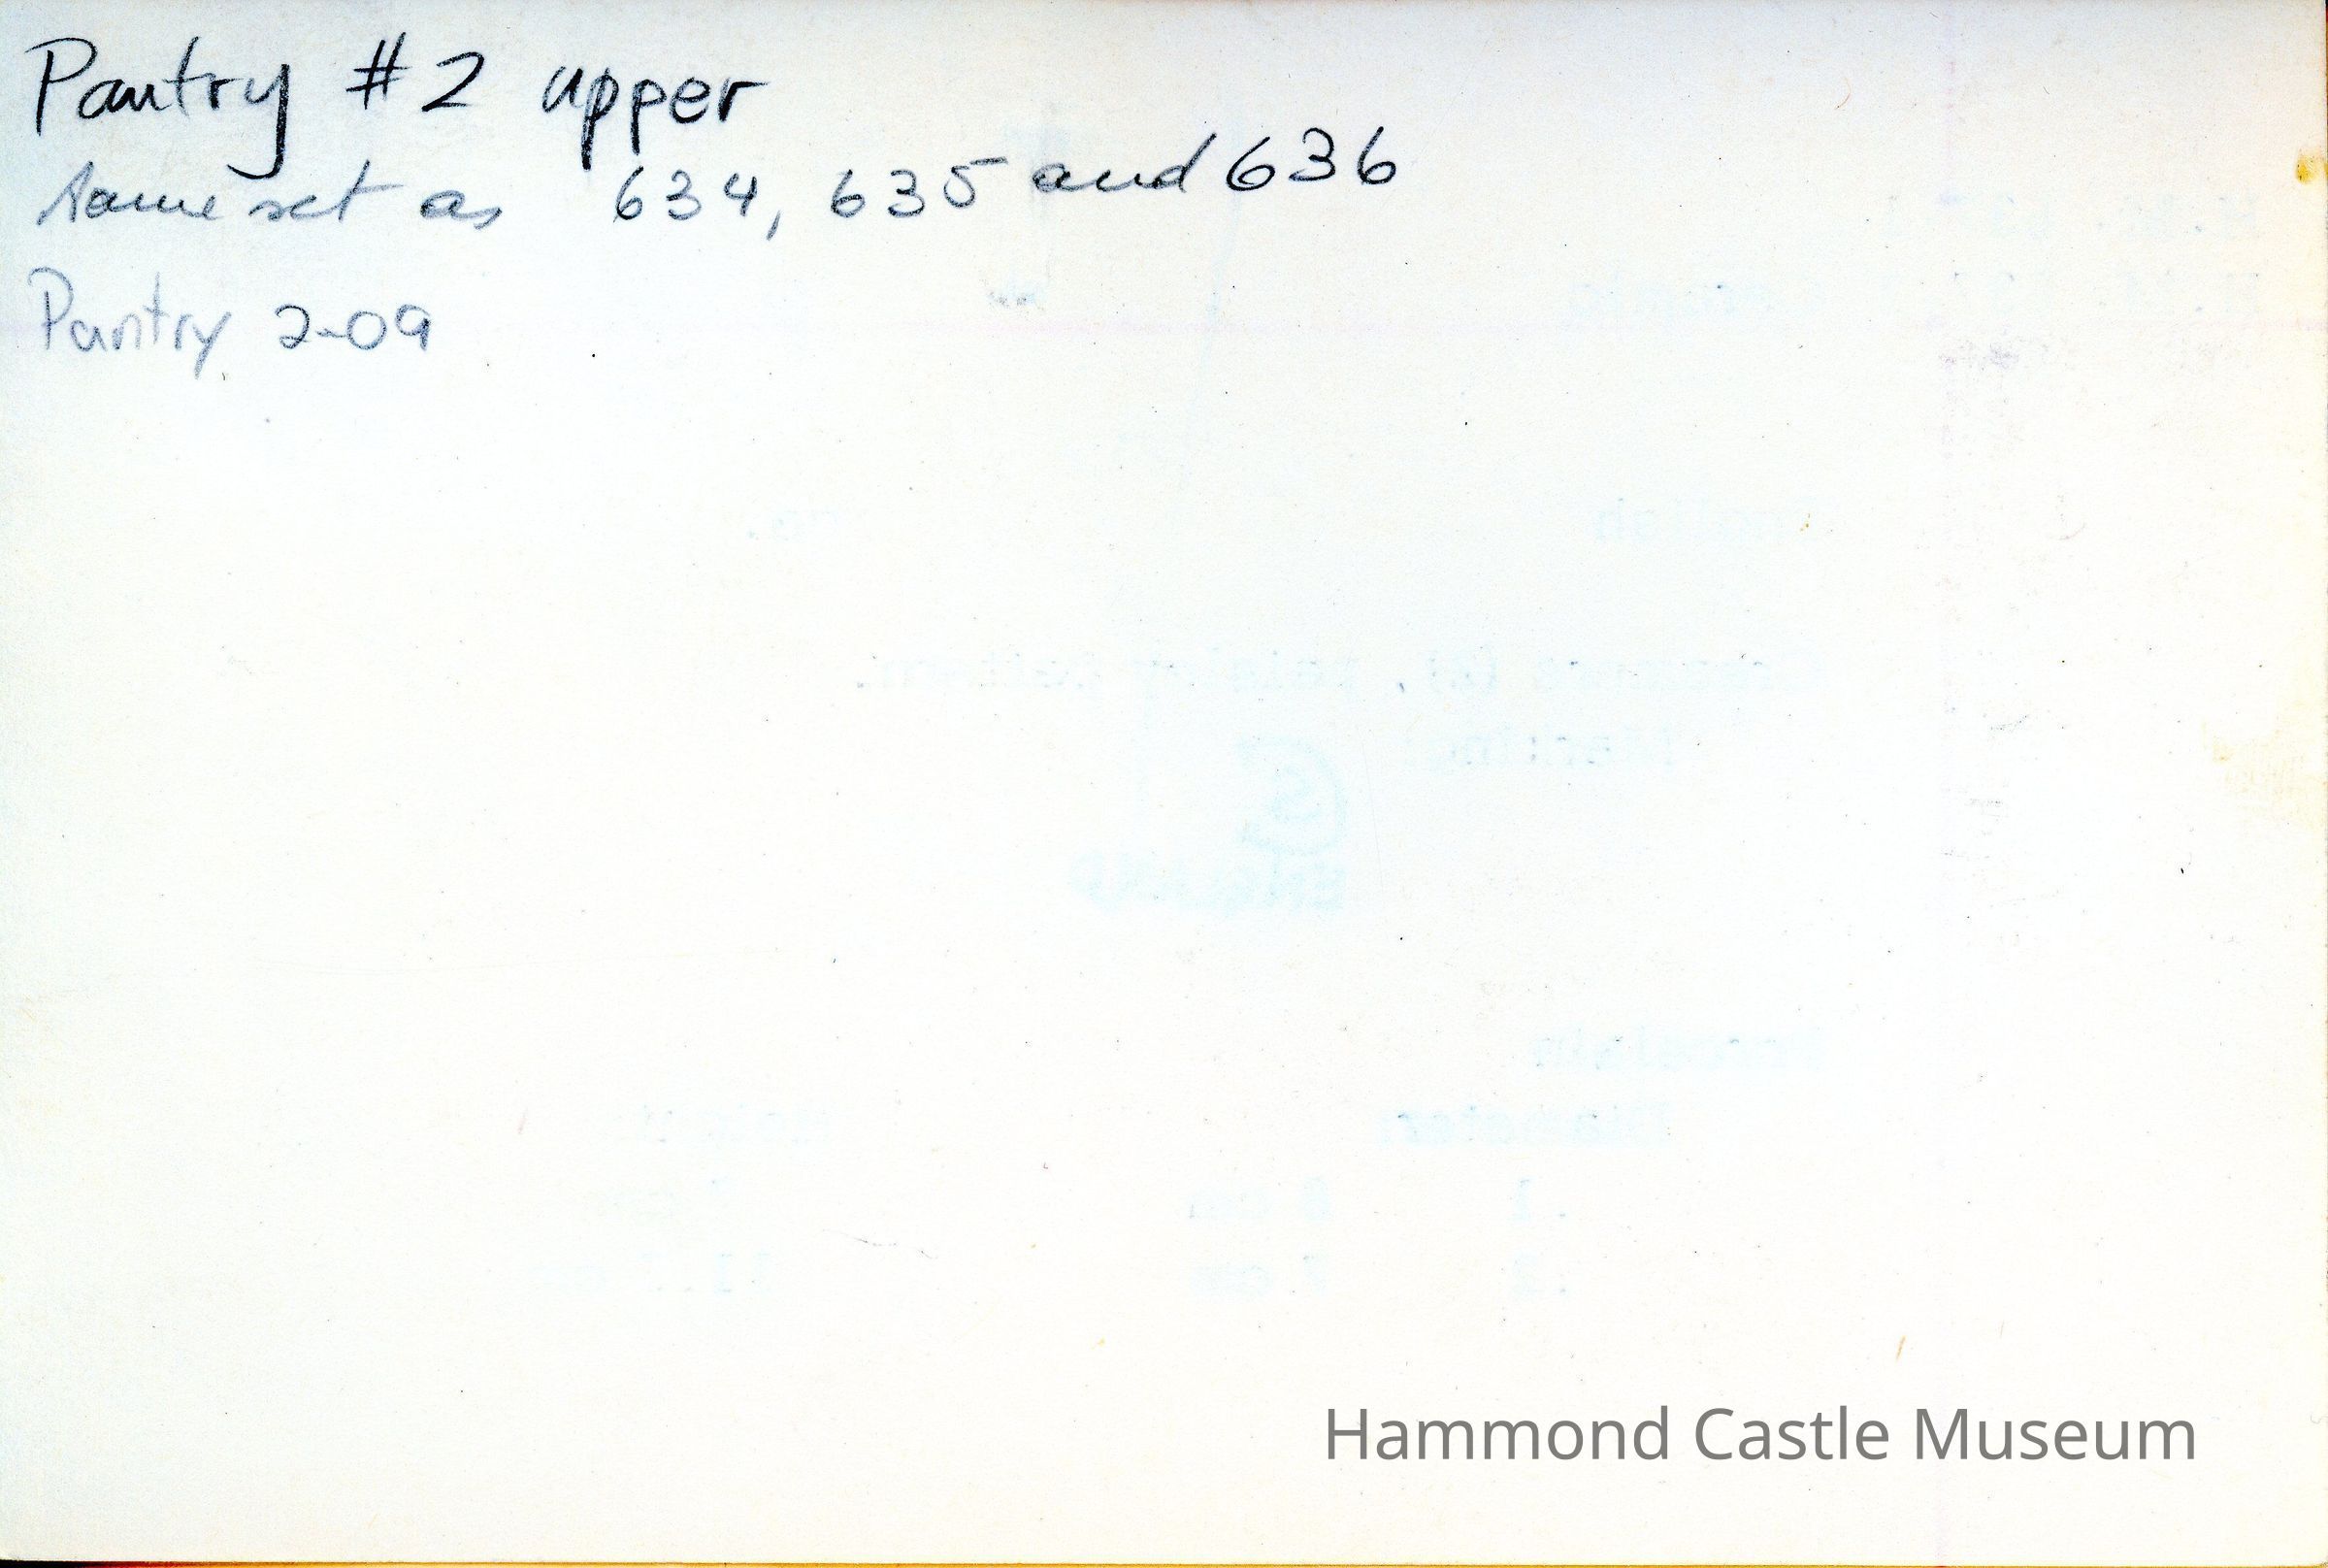 Pantry #2 upper
same set as 634, 635 and 636
Pantry 2-09
Hammond Castle Museum